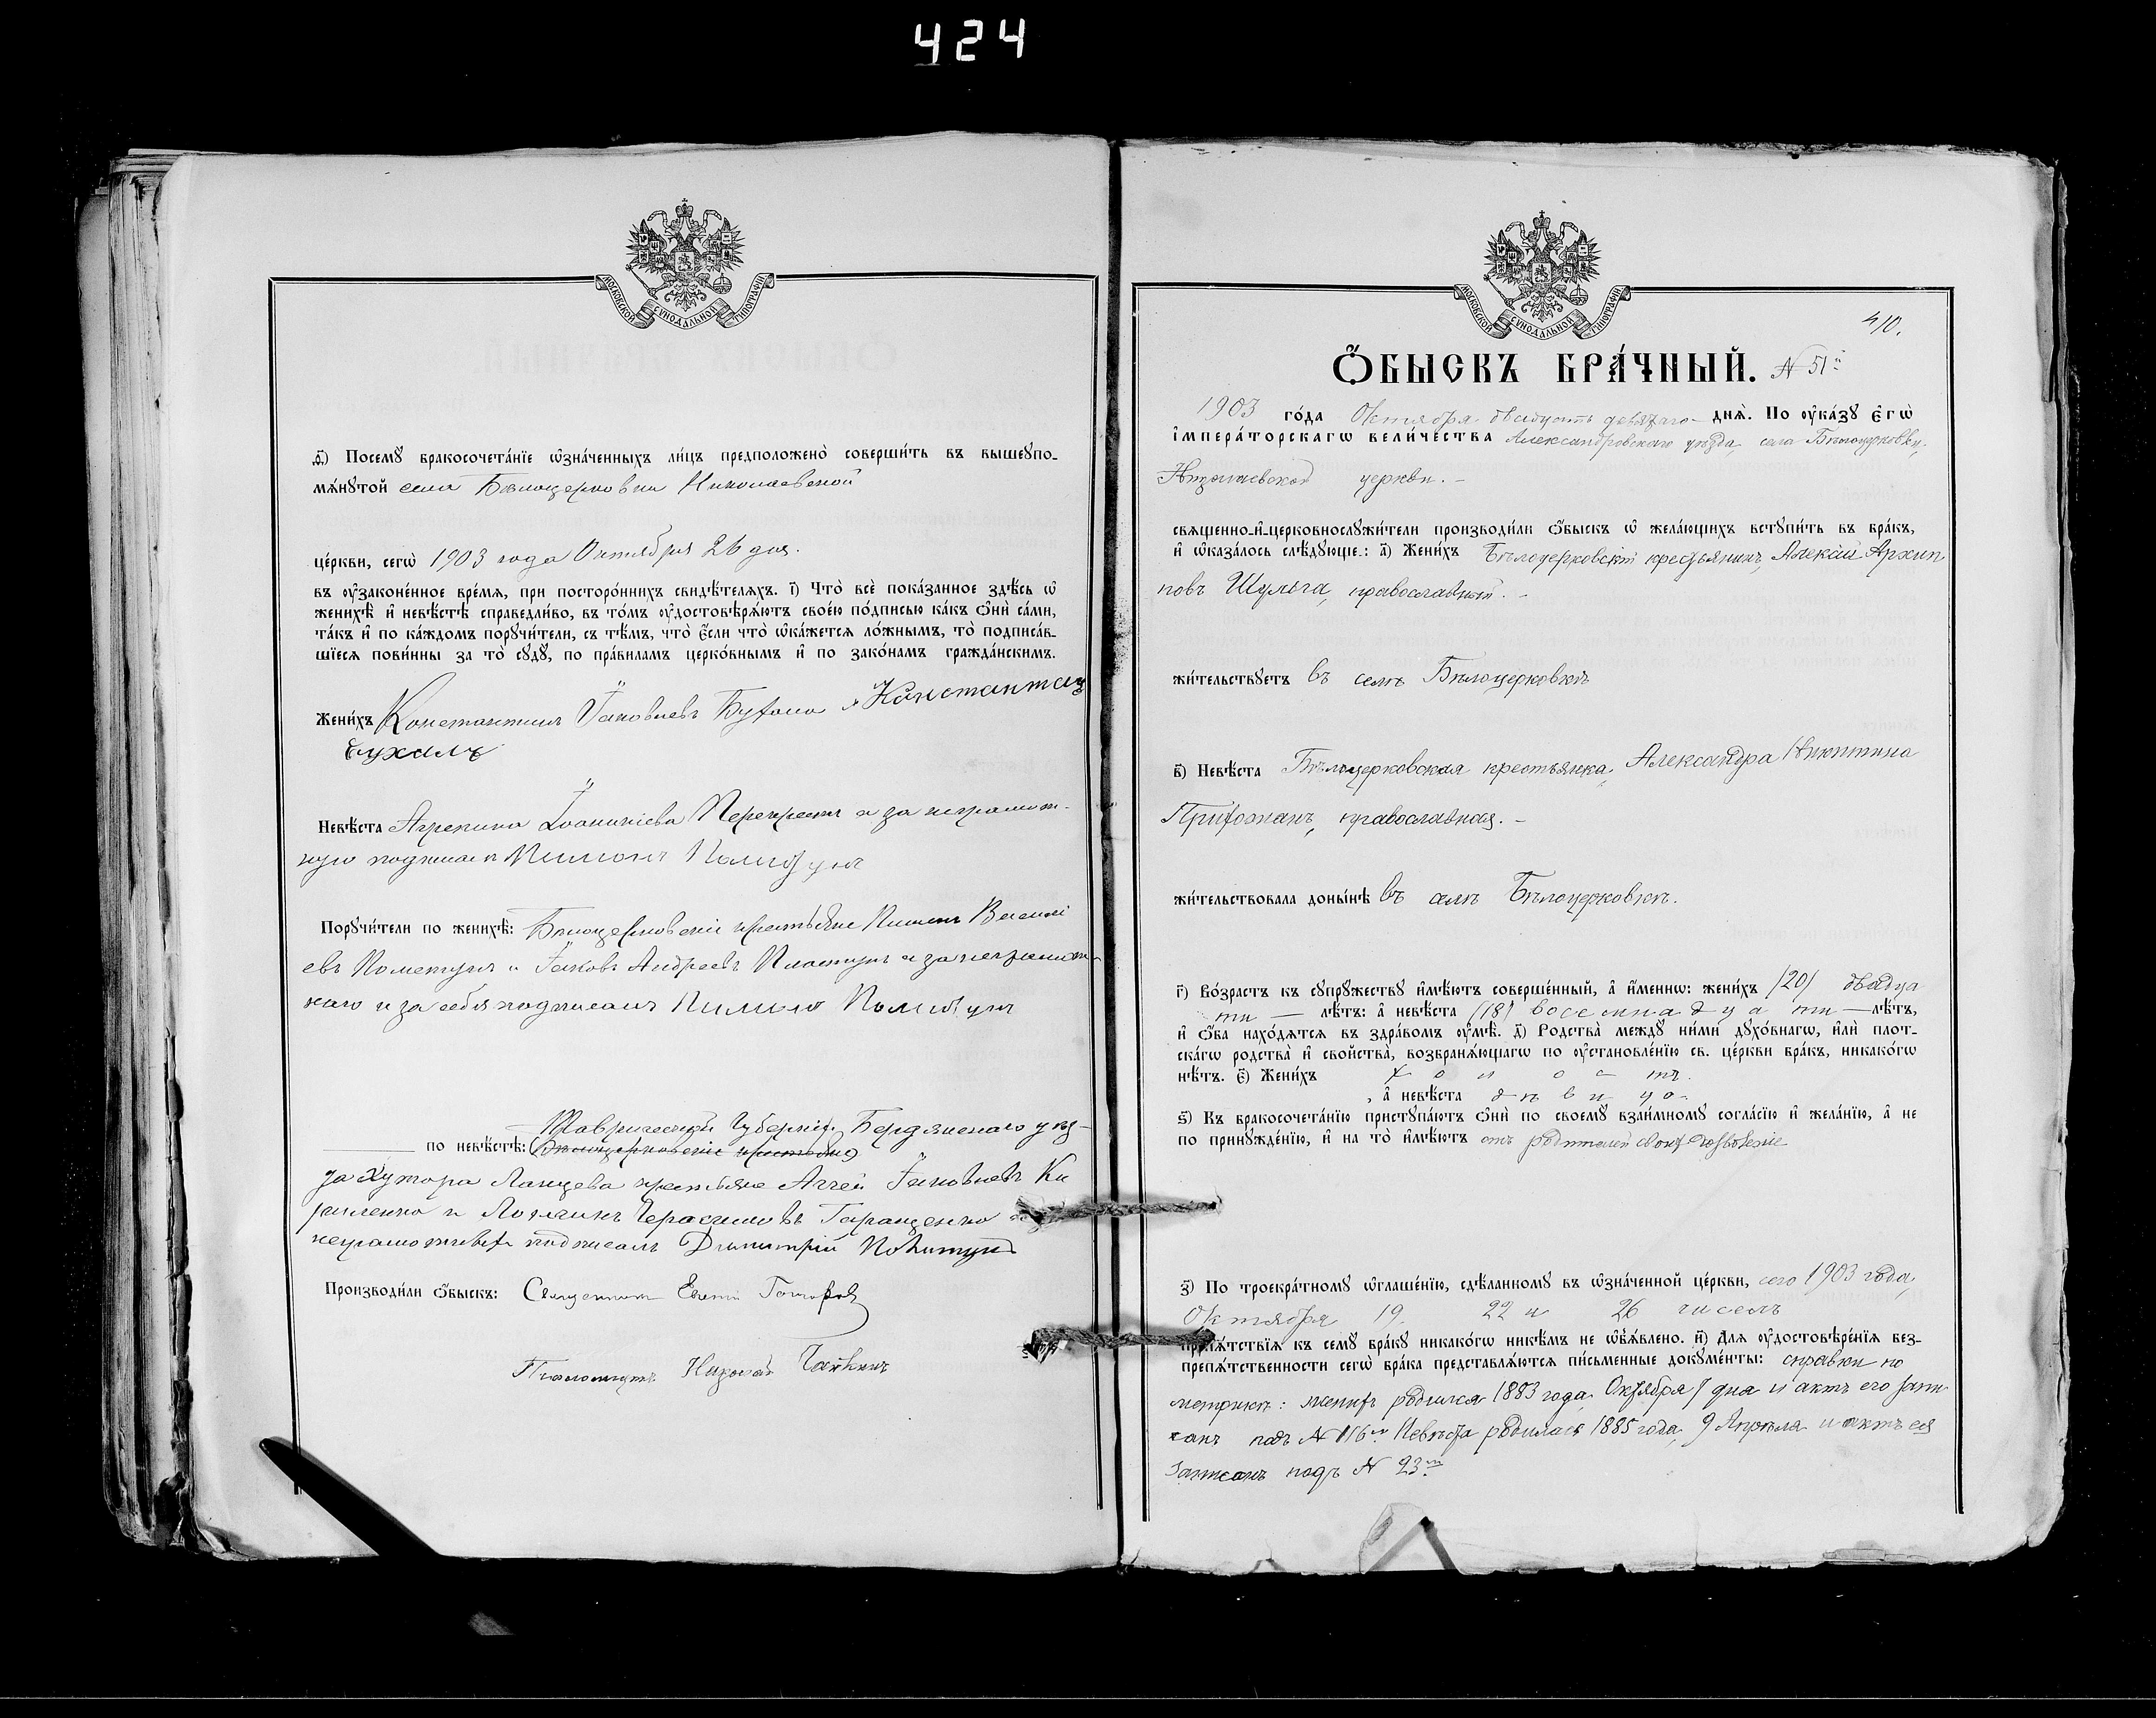 424
МОСКОВСКОЙ СѴНОДАЛЬНОЙ ТИПОГРАФІИ
ѳ҃) Посемꙋ̀ бракосочета́нїе ѡ҆зна́ченныхъ ли́цъ предположено̀ соверши́ть въ вышеꙋпо-
мѧ́нꙋтой села Бѣлоцерковки Николаевской
це́ркви, сегѡ̀ 1903 года Октября 26 дня.
въ ᲂу҆зако́ненное вре́мѧ, при посторо́ннихъ свидѣ́телѧхъ. і҃) Что̀ всѐ пока́занное здѣ́сь ѡ҆
женихѣ̀ и҆ невѣ́стѣ справедли́во, въ то́мъ ᲂу҆достовѣрѧ́ютъ свое́ю по́дписью ка́къ ѻ҆нѝ са́ми,
та́къ и҆ по ка́ждомъ порꙋчи́тели, съ тѣ́мъ, что̀ є҆́сли что̀ ѡ҆ка́жетсѧ ло́жнымъ, то̀ подписа́в-
шїесѧ пови́нны за то̀ сꙋдꙋ̀, по пра́виламъ церко́внымъ и҆ по зако́намъ гражда́нскимъ.
Жени́хъ Константинъ Іаковлевъ Бухало Константин
Бухалъ
Невѣ́ста Агрепина Іоаникіева Перекрестъ а за неграмот-
ную подписалъ Пименъ
Порꙋчи́тели по женихѣ̀: Бѣлоцерковскіе крестьяне Пименъ Василі
евъ и Іаковъ Андреевъ а за неграмот-
наго и за себя подписалъ Пименъ
Таврической Губерніи, Бердянскаго уѣз-
по невѣ́стѣ: (Бѣлоцерковскіе крестьяне)
да Хутора крестьяне Іаковлевъ Ки
риленко и Герасимовъ Таращенко а за
неграмотныхъ подписалъ Димитрій
Производи́ли ѻ҆́быскъ: Священникъ
Псаломщикъ Чайкинъ
МОСКОВСКОЙ СѴНОДАЛЬНОЙ ТИПОГРАФІИ
410.
Ѻ҆́БЫСКЪ БРА́ЧНЫЙ. № 51й
1903 го́да Октября двадцать девятаго дня̀. По ᲂу҆ка́зꙋ є҆гѡ̀
і҆мпера́торскагѡ вели́чества Александровскаго уѣзда, села Бѣлоцерковки,
Николаевской церкви.
свѧщенно-и҆-церковнослꙋжи́тели производи́ли ѻ҆́быскъ ѡ҆ жела́ющихъ встꙋпи́ть въ бра́къ,
и҆ ѡ҆каза́лось слѣ́дꙋющее: а҃) Жени́хъ Бѣлоцерковскій крестьянинъ, Алексій Архип
повъ Шульга, православный.
жи́тельствꙋетъ въ селѣ Бѣлоцерковкѣ
в҃) Невѣ́ста Бѣлоцерковская крестьянка, Александра Никитина
Пригожанъ, православная.
жи́тельствовала доны́нѣ въ селѣ Бѣлоцерковкѣ.
г҃) Во́зрастъ къ сꙋпрꙋ́жествꙋ и҆мѣ́ютъ соверше́нный, а҆ и҆́меннѡ: жени́хъ (20) двадца
ти — лѣ́тъ: а҆ невѣ́ста (18) восемнадцати — лѣ́тъ,
и҆ ѻ҆́ба нахо́дѧтсѧ въ здра́вомъ ᲂу҆мѣ̀. д҃) Родства̀ междꙋ̀ ни́ми дꙋхо́внагѡ, и҆лѝ плот-
ска́гѡ родства̀ и҆ свойства̀, возбранѧ́ющагѡ по ᲂу҆становле́нїю св. це́ркви бра́къ, никако́гѡ
нѣ́тъ. є҃) Жени́хъ холостъ.
, а҆ невѣ́ста дѣвица.
ѕ҃) Къ бракосочета́нїю пристꙋпа́ютъ ѻ҆нѝ по своемꙋ̀ взаи́мномꙋ согла́сїю и҆ жела́нїю, а҆ не
по принꙋжде́нїю, и҆ на то̀ и҆мѣ́ютъ отъ родителей своихъ дозволеніе
з҃) По троекра́тномꙋ ѡ҆глаше́нїю, сдѣ́ланномꙋ въ ѡ҆зна́ченной це́ркви, сего 1903 года,
Октября 19, 22 и 26 чиселъ
препѧ́тствїѧ къ семꙋ̀ бра́кꙋ никако́гѡ никѣ́мъ не ѡ҆б̾ѧ́влено. и҃) Длѧ ᲂу҆достовѣре́нїѧ без-
препѧ́тственности сегѡ̀ бра́ка представлѧ́ютсѧ пи́сьменные докꙋме́нты: справки по
метрикѣ: женихъ родился 1883 года, Октября 1 дня и актъ его запи
санъ подъ № 116м. Невѣста родилась 1885 года, 9 Апрѣля и актъ ея
записанъ подъ № 23м